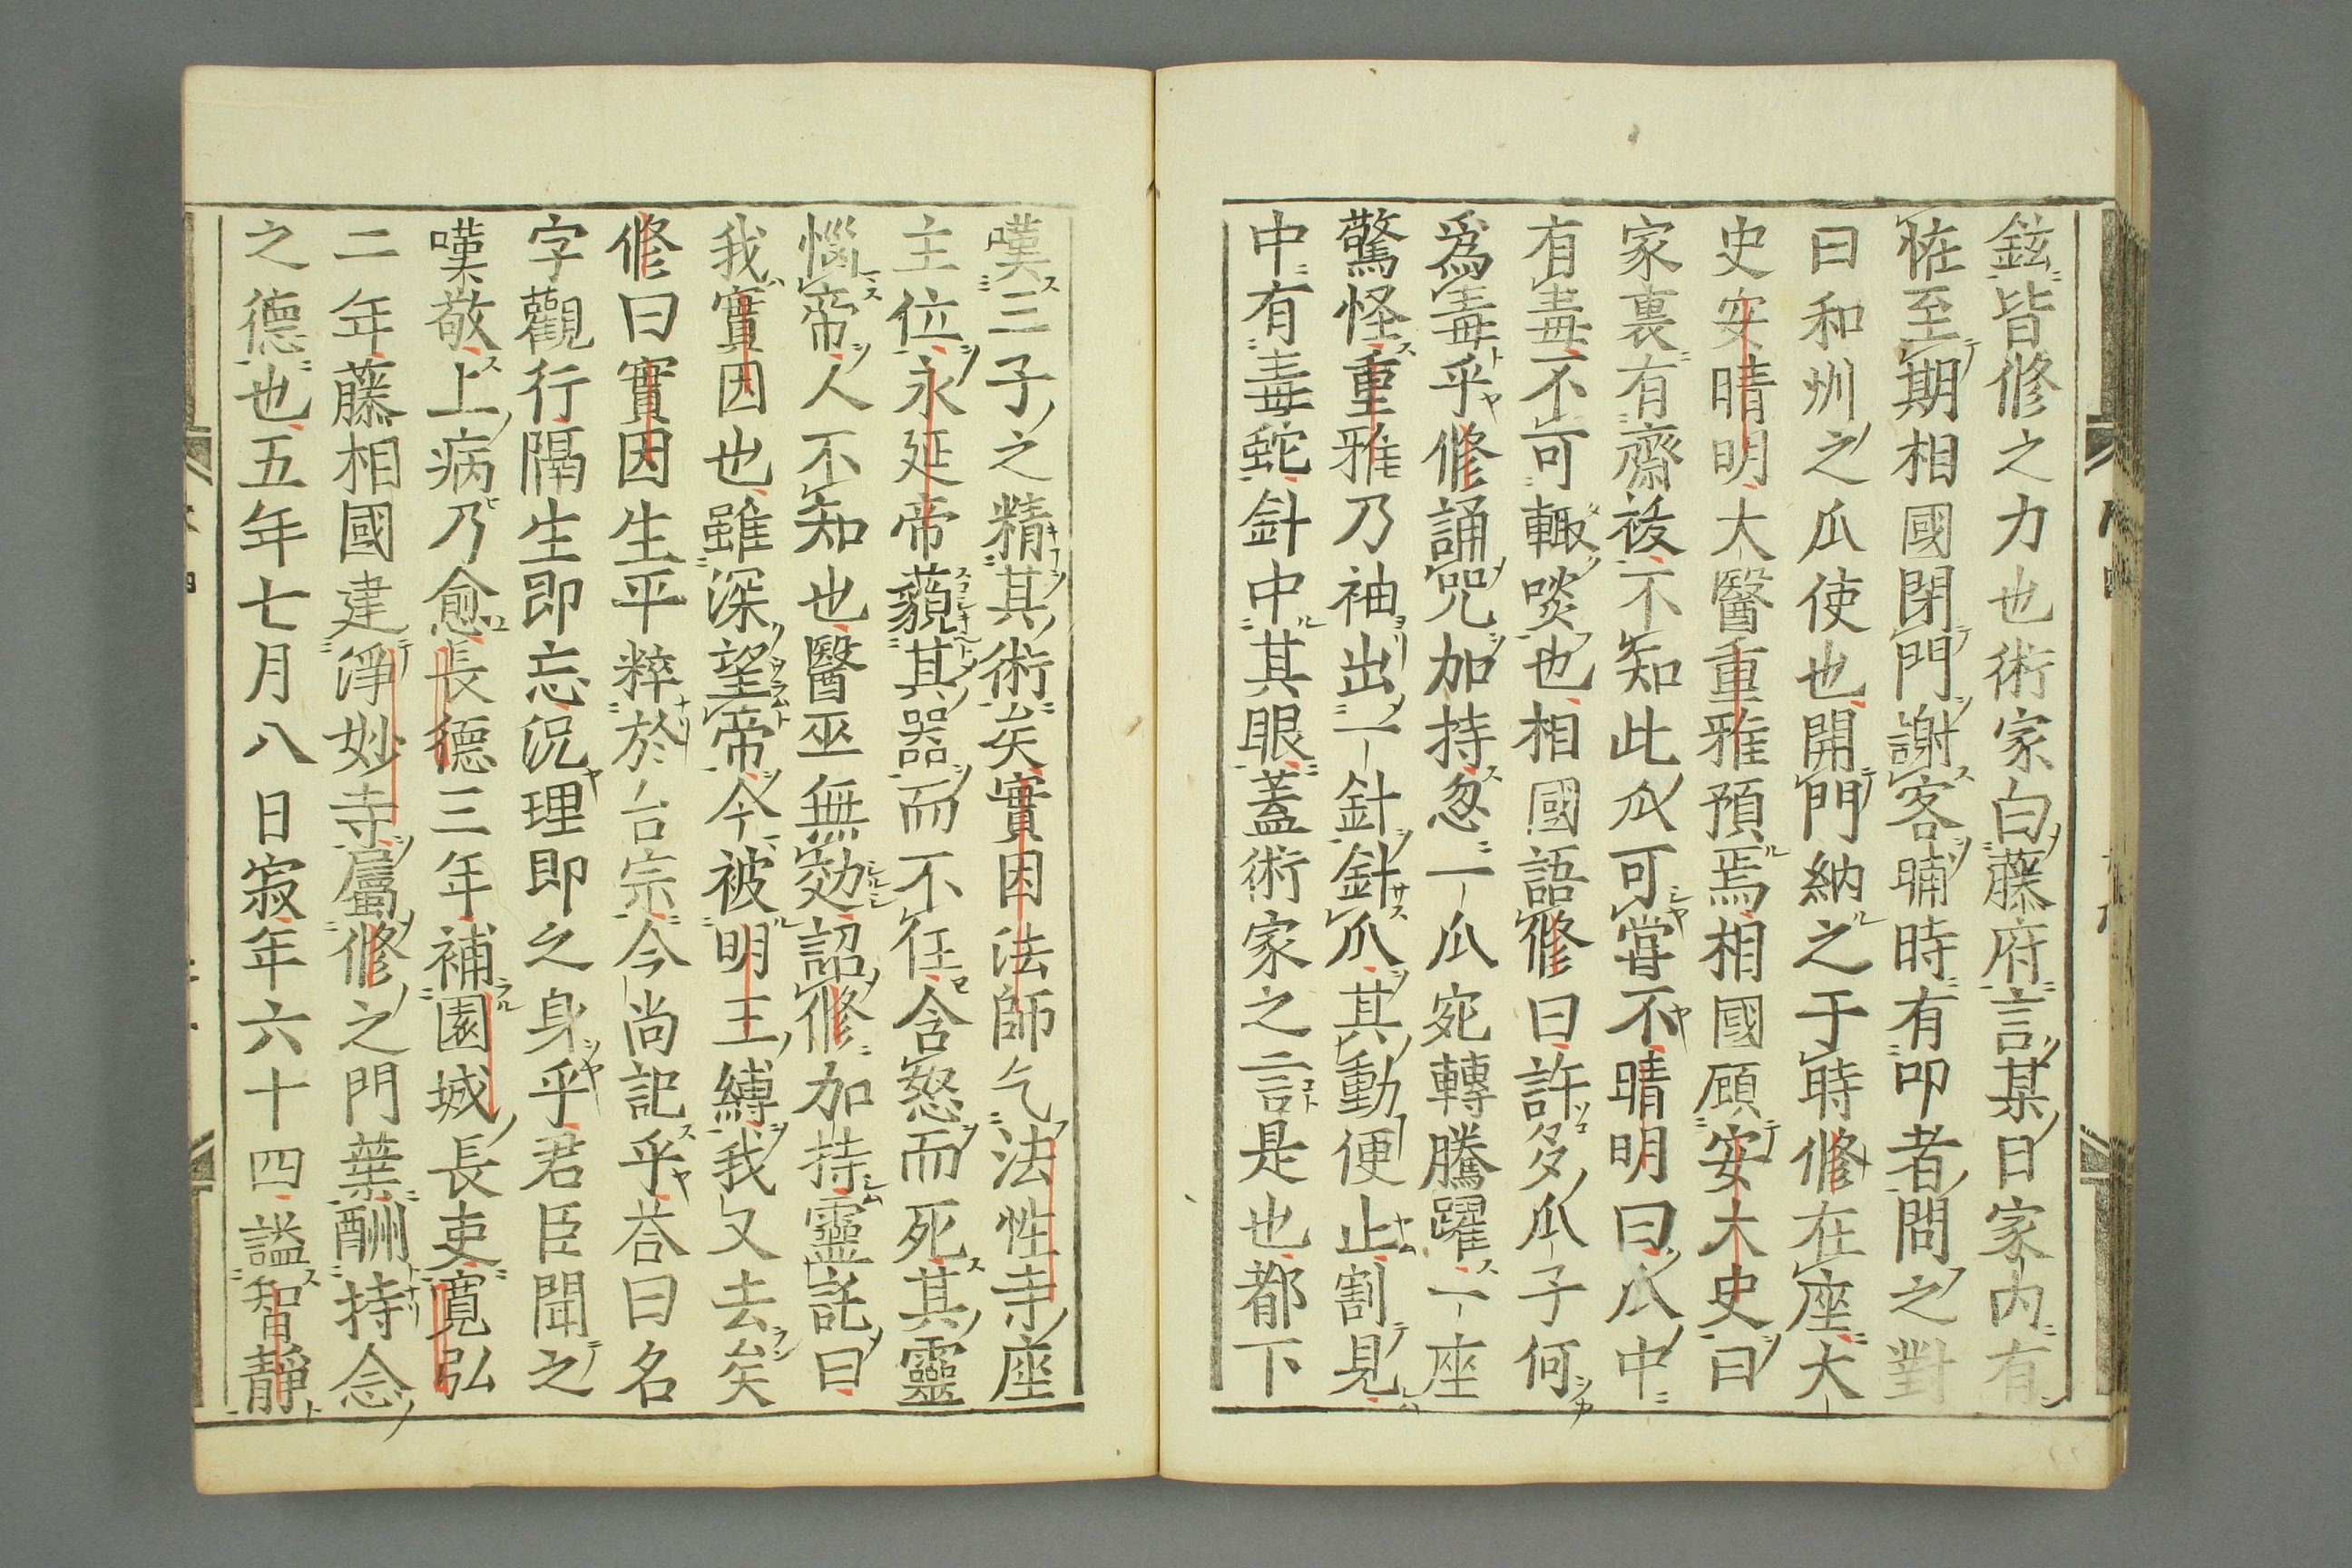 鉉皆修之力也術家白藤府言某日家內有
恠至期相國閉門謝客晡時有叩者問之對
曰和州之瓜使也開門納之于時修在座大
史安晴明大醫重雅預焉相國顧安大史曰
家裏有齋祓不知此瓜可甞不晴明曰瓜中
有毒不可輙啖也相國語修曰許多瓜子何
爲毒乎修誦咒加持忽一瓜宛轉騰躍一座
驚怪重雅乃袖出一針針瓜其動便止割見
中有毒蛇針中其眼蓋術家之言是也都下
嘆三子之精其術矣實因法師乞法性寺座
主位永延帝藐其器而不任含怒而死其靈
惱帝人不知也醫巫無効詔修加持靈託曰
我實因也雖深望帝今被明王縛我又去矣
修曰實因生平粹於台宗今尚記乎荅曰名
字觀行隔生即忘況理即之身乎君臣聞之
嘆敬上病乃愈長德三年補園城長吏寬弘
二年藤相國建淨妙寺屬修之門葉酬持念
之德也五年七月八日寂年六十四謚智靜